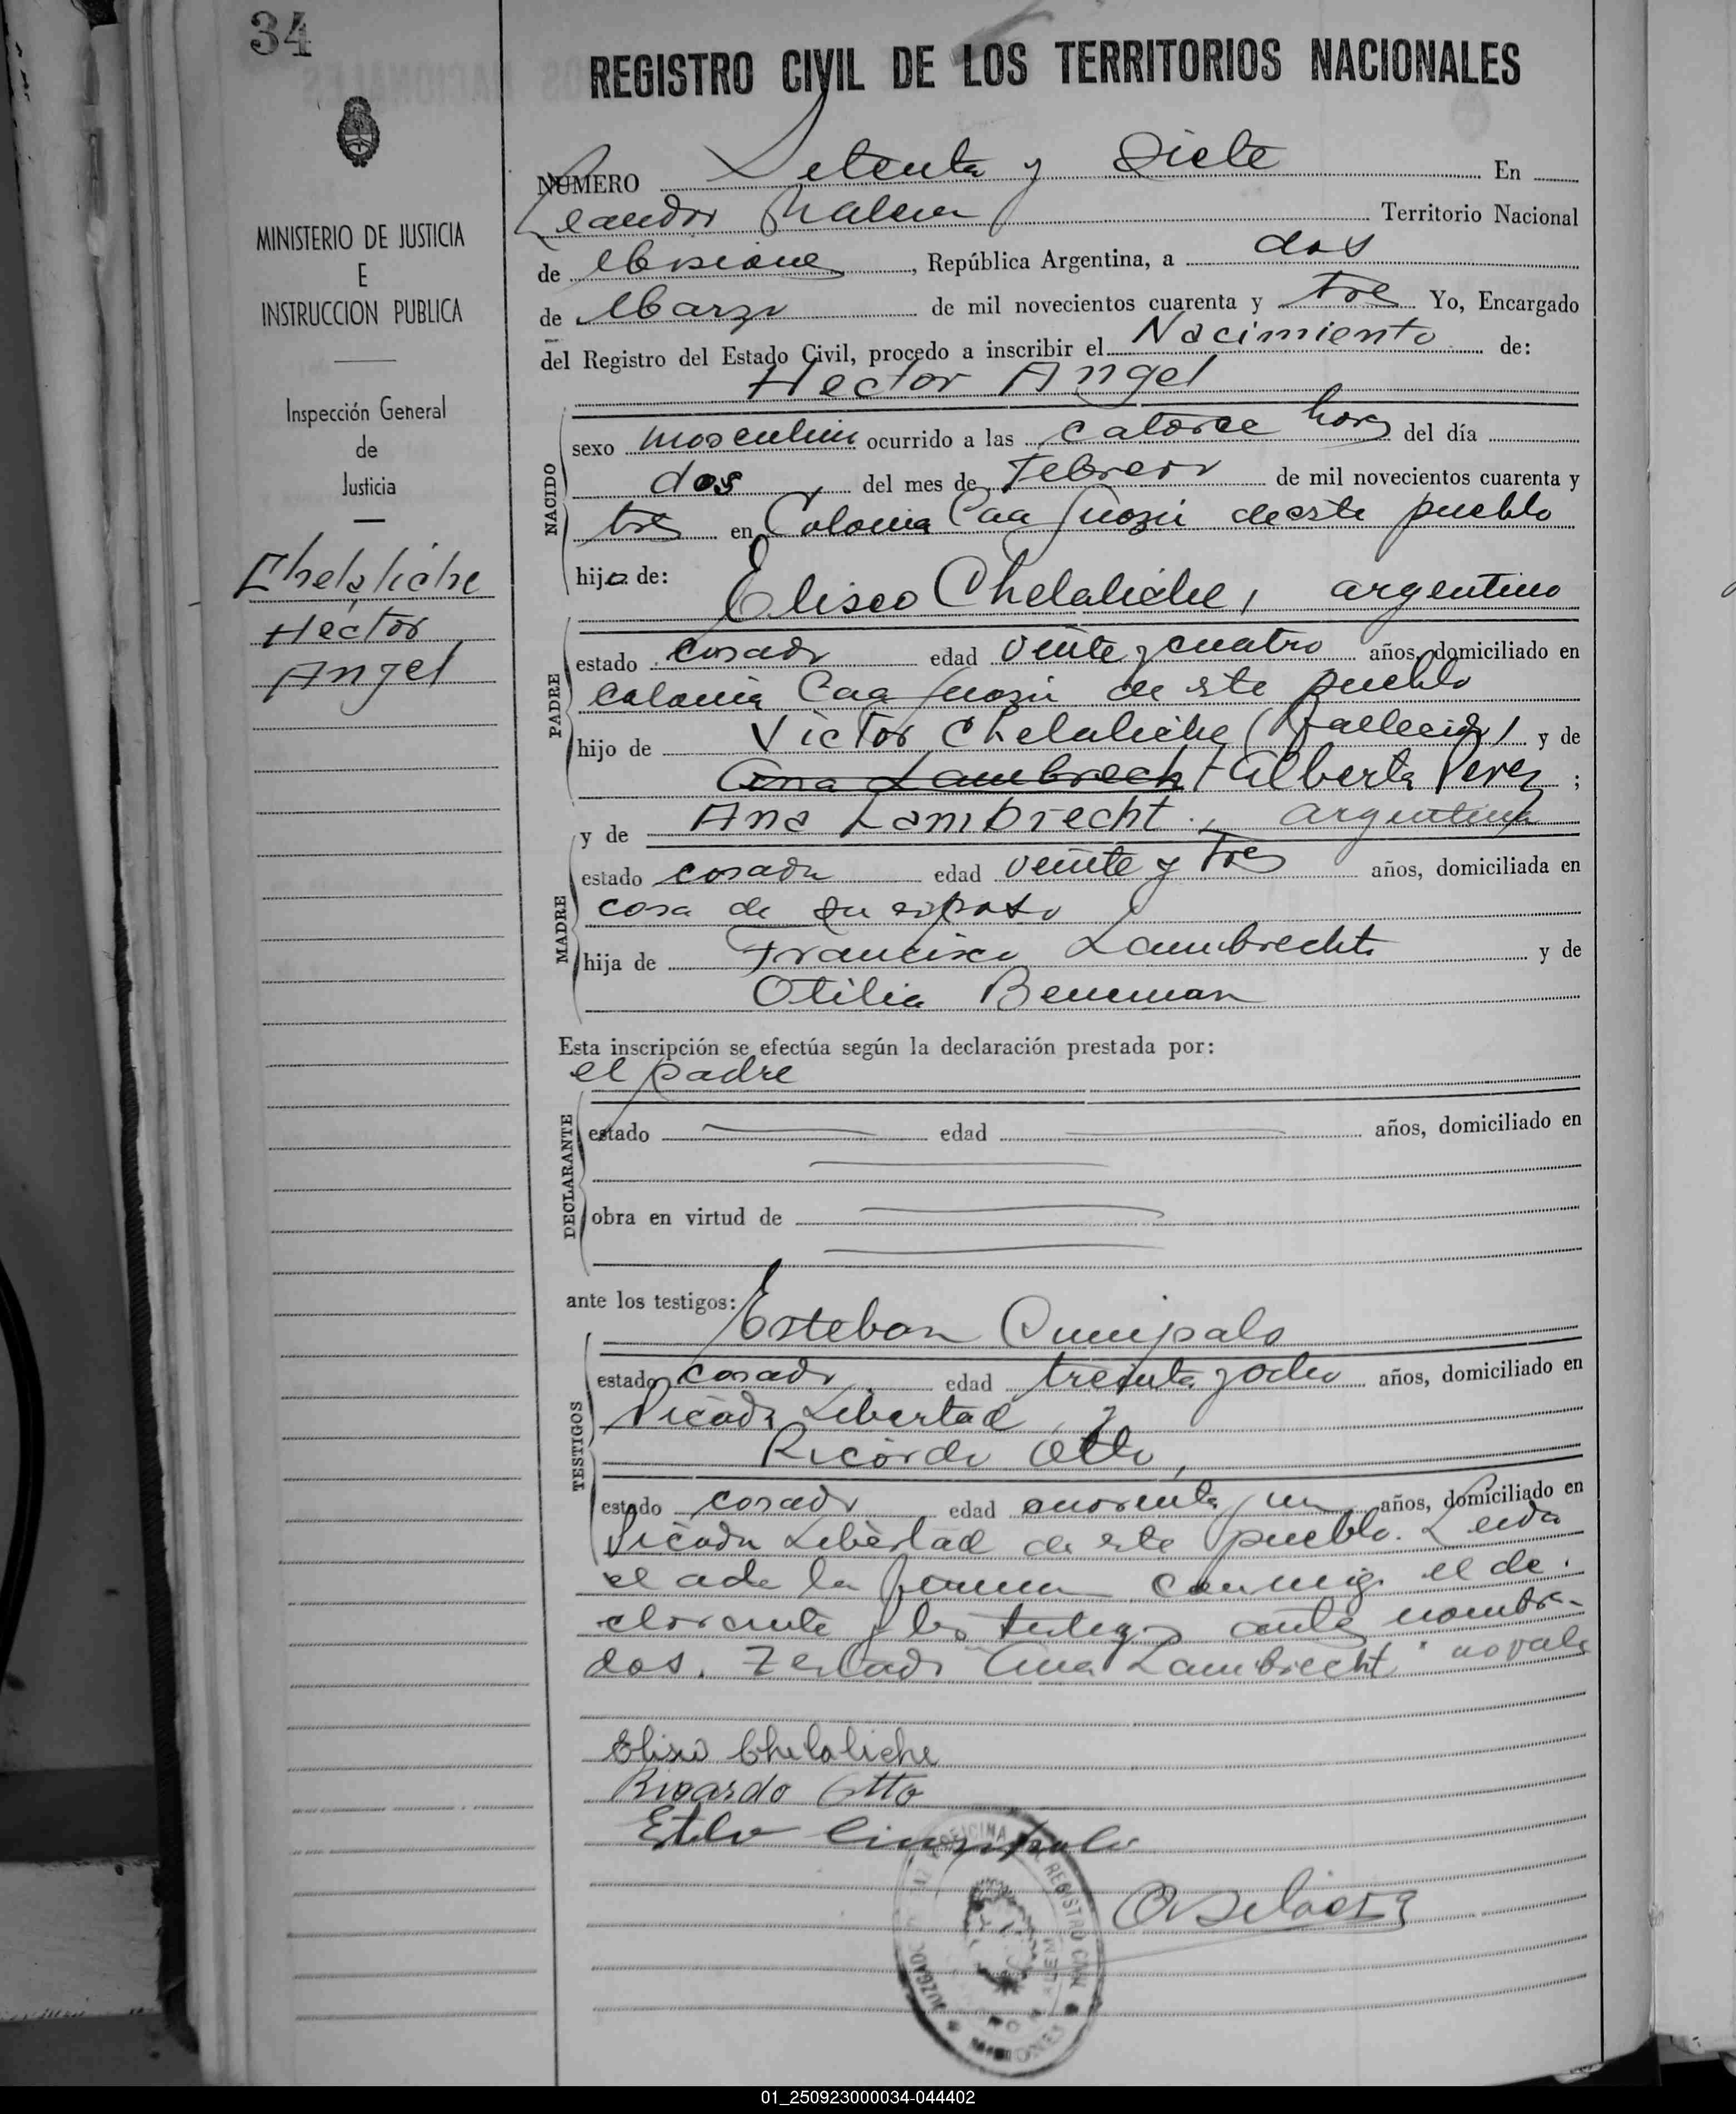 34
REGISTRO CIVIL DE LOS TERRITORIOS NACIONALES
MINISTERIO DE JUSTICIA
E
INSTRUCCION PUBLICA
Inspección General
de
Justicia
Chelaliche
Hector
Angel
NUMERO Setenta y Siete En
Leandro Territorio Nacional
de Misiones, República Argentina, a dos
de Marzo de mil novecientos cuarenta y tres Yo, Encargado
del Registro del Estado Civil, procedo a inscribir el Nacimiento de:
Hector Angel
NACIDO
sexo masculino ocurrido a las catorce horas del día
dos del mes de Febrero de mil novecientos cuarenta y
tres en Colonia Caa Guazú de este pueblo
hijo de:
Eliseo Chelaliche, argentino
PADRE
estado casado edad veinte y cuatro años, domiciliado en
colonia Caa Guazú de este pueblo
hijo de Victor Chelaliche (fallecido) y de
Ana Lambrecht Alberta Perez ;
y de Ana Lambrecht, argentina
MADRE
estado casada edad veinte y tres años, domiciliada en
casa de su esposo
hija de Francisco Lambrecht y de
Otilia
Esta inscripción se efectúa según la declaración prestada por:
el padre
DECLARANTE
estado edad años, domiciliado en
obra en virtud de
ante los testigos:
Esteban
TESTIGOS
estado casado edad treinta y ocho años, domiciliado en
Picada Libertad y
Ricardo Otto,
estado casado edad cuarenta y un años, domiciliado en
Picada Libertad de este pueblo. Leida
el acta la firman conmigo el de
clarante y los testigos antes nombra-
dos. Testado "Ana Lambrecht" no vale
Eliseo Chelaliche
Ricardo Otto
OFICINA REGISTRO CIVIL
JUZGADO
MISIONES
01_250923000034-044402